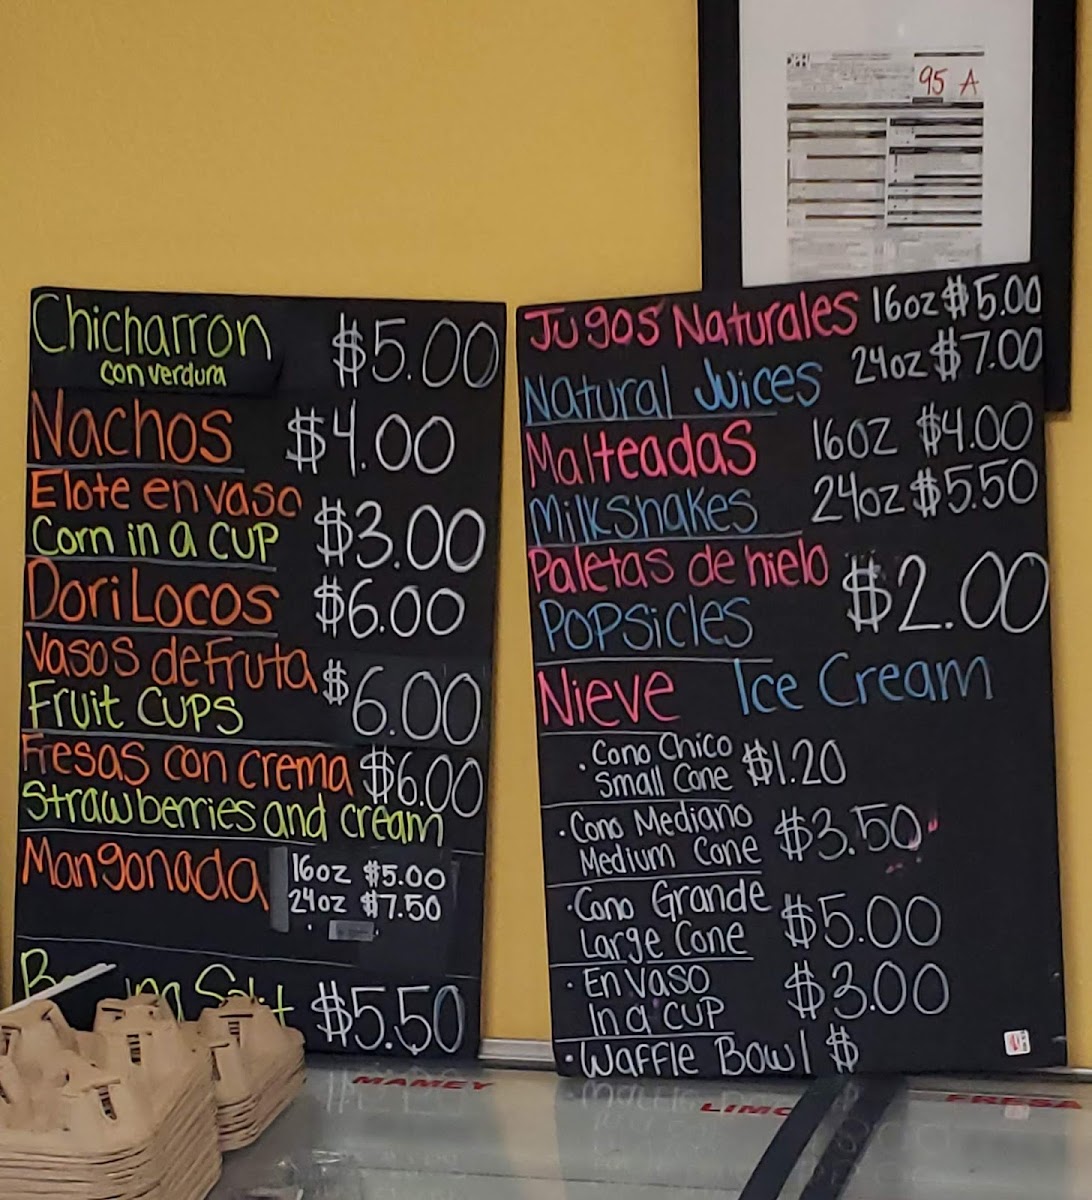 95 A
Chicharron $5.00
con verdura
Nachos $4.00
Elote en vaso
Corn in a cup $3.00
DoriLocos $6.00
Vasos de Fruta
Fruit Cups $6.00
Fresas con crema $6.00
Strawberries and cream
Mangonada 16oz $5.00
24oz $7.50
$5.50
Jugos Naturales 16oz $5.00
Natural Juices 24oz $7.00
Malteadas 16oz $4.00
Milkshakes 24oz $5.50
Paletas de hielo
Popsicles $2.00
Nieve Ice Cream
. Cono Chico
Small Cone $1.20
. Cono Mediano
Medium Cone $3.50
. Cono Grande
Large Cone $5.00
. En vaso
In a cup $3.00
. Waffle Bowl $
MAMEY
FRESA